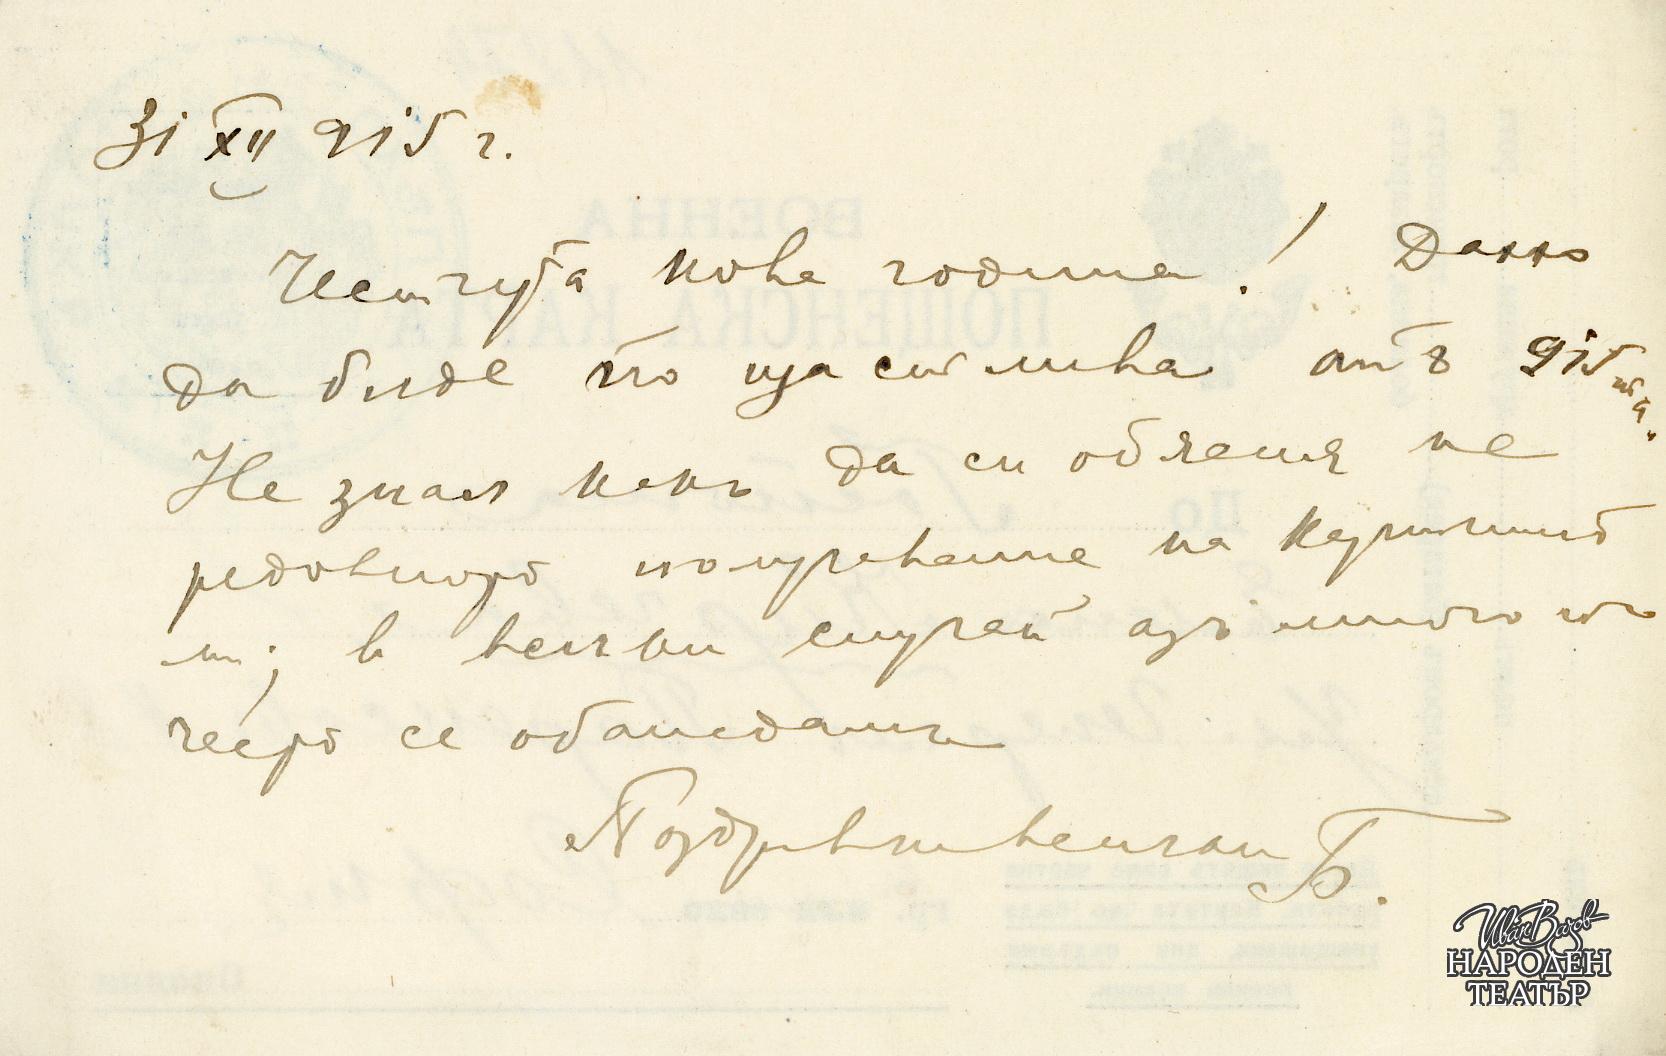 31 XII 915 г.
Честита нова година! Дано
да бъде по щастлива отъ 915та.
Не зная какъ да си обясня не
редовното получавание на картичкит
ти; въ всички случаи азъ много по
често се обаждамъ
Поздрави всички Б.
Иван Вазов
НАРОДЕН
ТЕАТЪР